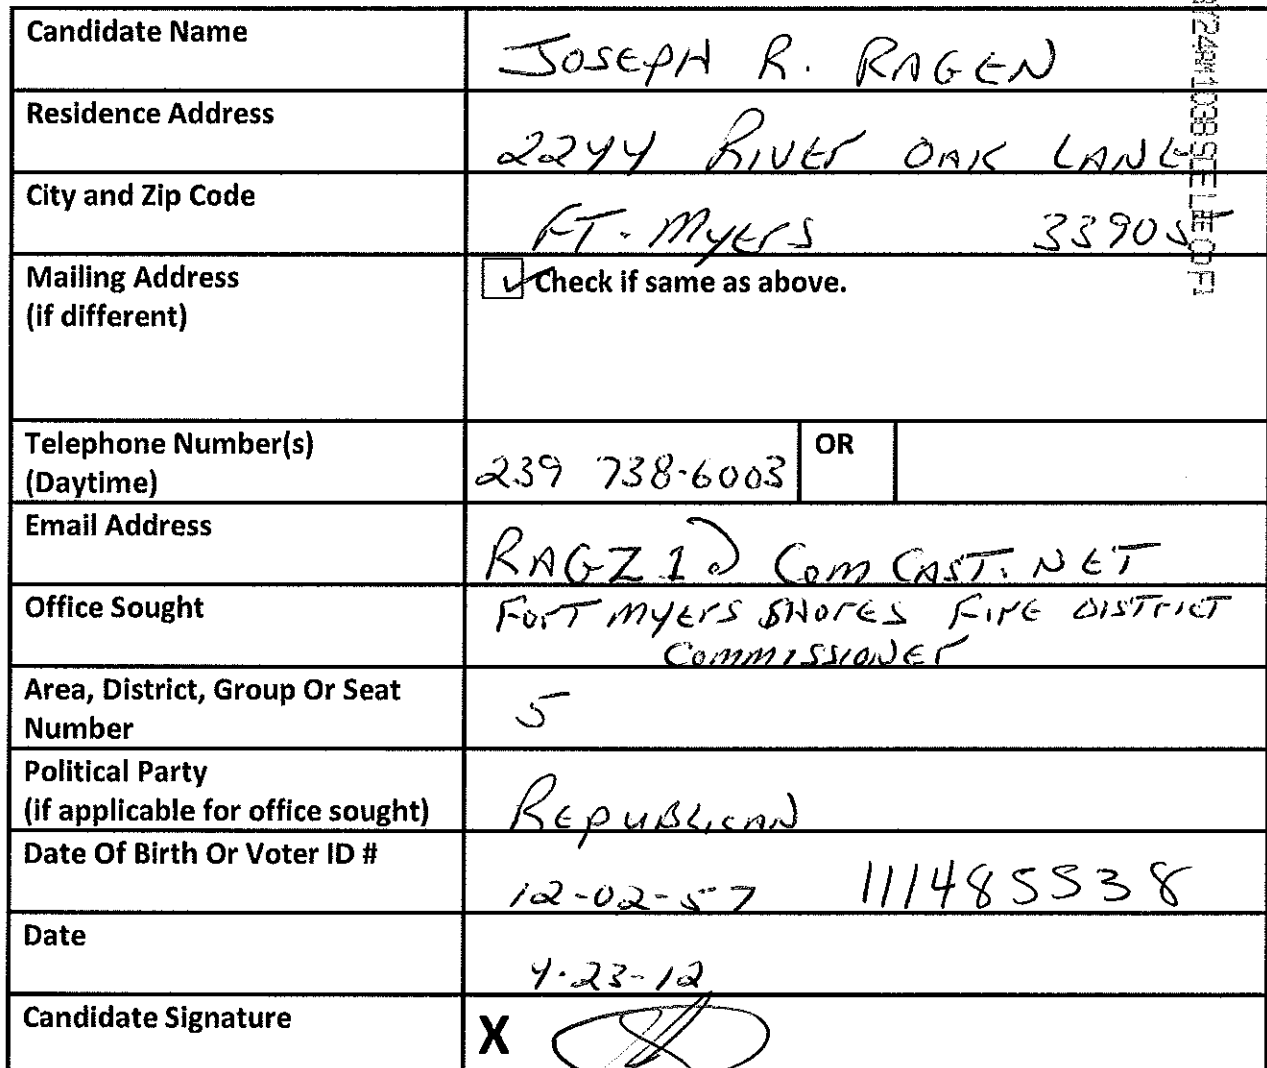 Candidate Name
JOSEPH R. RAGEN
Residence Address
2244 RIVER OAK LANE
City and Zip Code
FT. MYERS 33905
Mailing Address
(if different)
Check if same as above.
Telephone Number(s)
(Daytime)
239 738-6003
OR
Email Address
RAGZ1@COMCAST.NET
Office Sought
FORT MYERS SHORES FIRE DISTRICT
COMMISSIONER
Area, District, Group Or Seat
Number
5
Political Party
(if applicable for office sought)
REPUBLICAN
Date Of Birth Or Voter ID #
12-02-57 111485538
Date
4-23-12
Candidate Signature
X